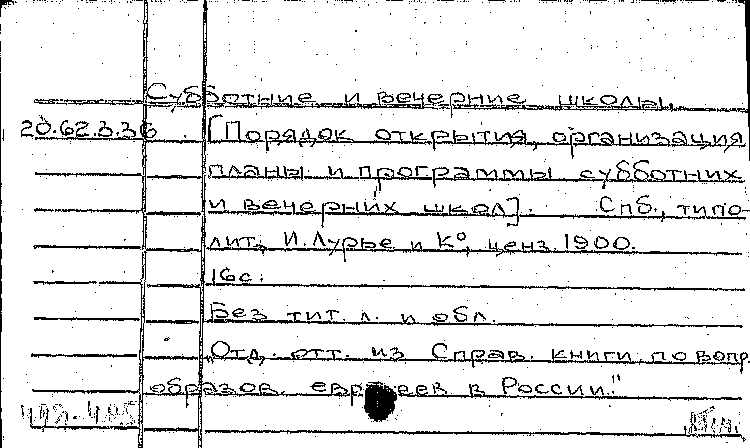 Субботние и вечерние школы.
20.62.3.36 [Порядок открытия, организация
планы и программы субботних
и вечерних школ]. Спб., типо-
лит. И. Лурье и К°, ценз. 1900.
16с.
Без тит. л. и обл.
"Отд. отт. из Справ. книги по вопр.
образов. евреев в России."